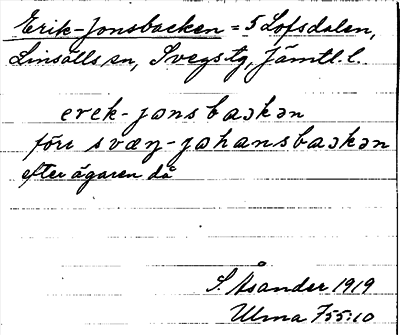 Erik-Jonsbacken = 5 Lofsdalen,
Linsälls sn, Svegs tg, Jämtl. l.
erek-jonsbaɔkən
förr svæŋ-johansbaɔkən
efter ägaren då
S. Åsander 1919
Ulma 755:10